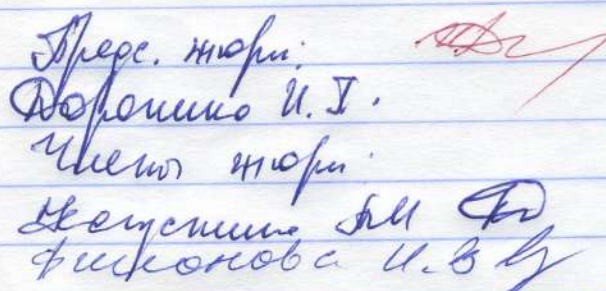 Предс. жюри:
Доронина И. Г.
Члены жюри:
Капустина
Филонова И. В